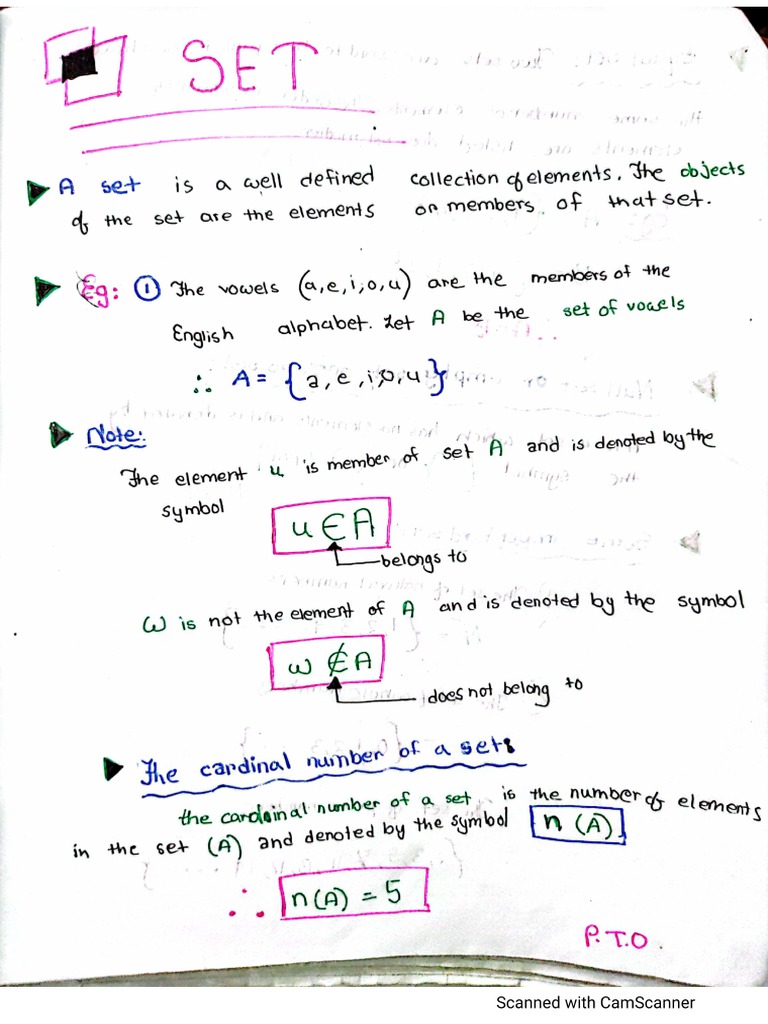 SET
A set is a well defined collection of elements. The objects
of the set are the elements or members of that set.
Eg: ① The vowels (a,e,i,o,u) are the members of the
English alphabet. Let A be the set of vowels
∴ A = {a, e, i, o, u}
Note:
The element u is member of set A and is denoted by the
symbol
u ∈ A
belongs to
ω is not the element of A and is denoted by the symbol
ω ∉ A
does not belong to
The cardinal number of a set:
the cardinal number of a set is the number of elements
in the set (A) and denoted by the symbol n (A)
∴ n(A) = 5
P.T.O.
Scanned with CamScanner